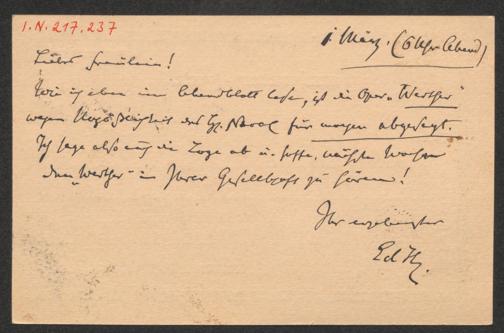 I.N. 217.237
1. März. (6 Uhr Abend)
Liebes Fräulein!
Wie ich eben im Abendblatt lese, ist die Oper „Werther"
wegen Unpäßlichkeit des Frl. Renard für morgen abgesagt.
Ich sage also auch die Loge ab u. hoffe, nächste Wochen
den „Werther" in Ihrer Gesellschaft zu hören!
Ihr ergebenster
Ed H.